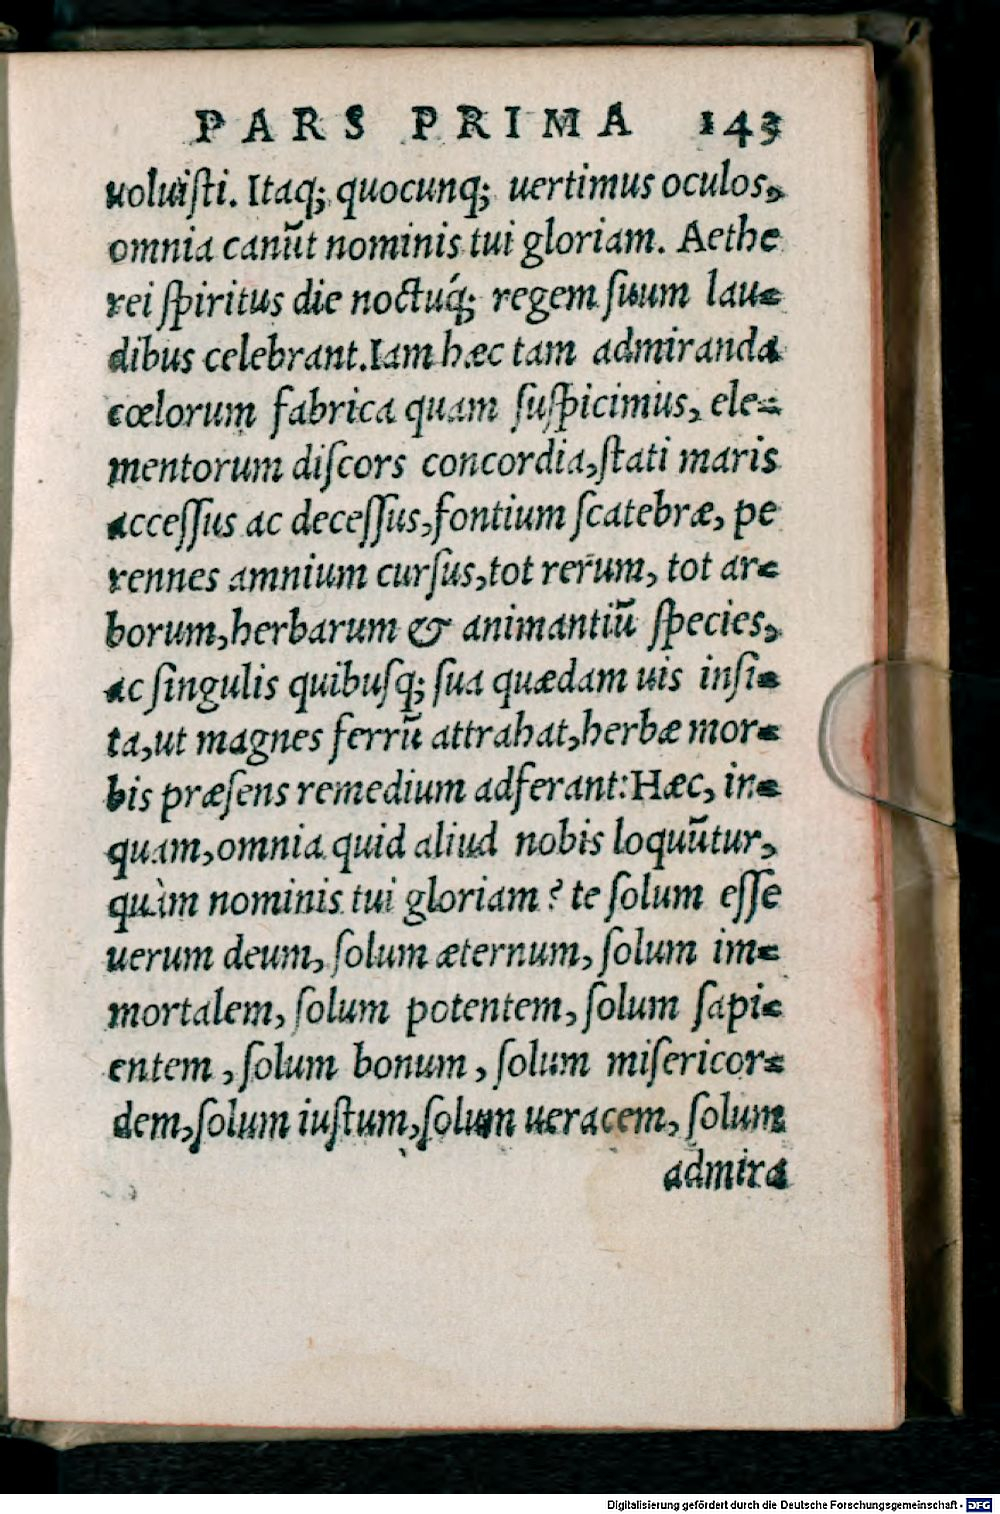 PARS PRIMA 143
uoluiſti. Itaq; quocunq; uertimus oculos,
omnia canũt nominis tui gloriam. Aethe
rei ſpiritus die noctuq́; regem ſuum lau-
dibus celebrant. Iam hæc tam admiranda
cœlorum fabrica quam ſuſpicimus, ele-
mentorum diſcors concordia, ſtati maris
acceſſus ac deceſſus, fontium ſcatebræ, pe
rennes amnium curſus, tot rerum, tot ar-
borum, herbarum & animantiũ ſpecies,
ac ſingulis quibuſq; ſua quædam uis inſi-
ta, ut magnes ferrũ attrahat, herbæ mor-
bis præſens remedium adferant: Hæc, in-
quam, omnia quid aliud nobis loquũtur,
quàm nominis tui gloriam? te ſolum eſſe
uerum deum, ſolum æternum, ſolum im-
mortalem, ſolum potentem, ſolum ſapi-
entem, ſolum bonum, ſolum miſericor-
dem, ſolum iuſtum, ſolum ueracem, ſolum
admira
Digitalisierung gefördert durch die Deutsche Forschungsgemeinschaft - DFG